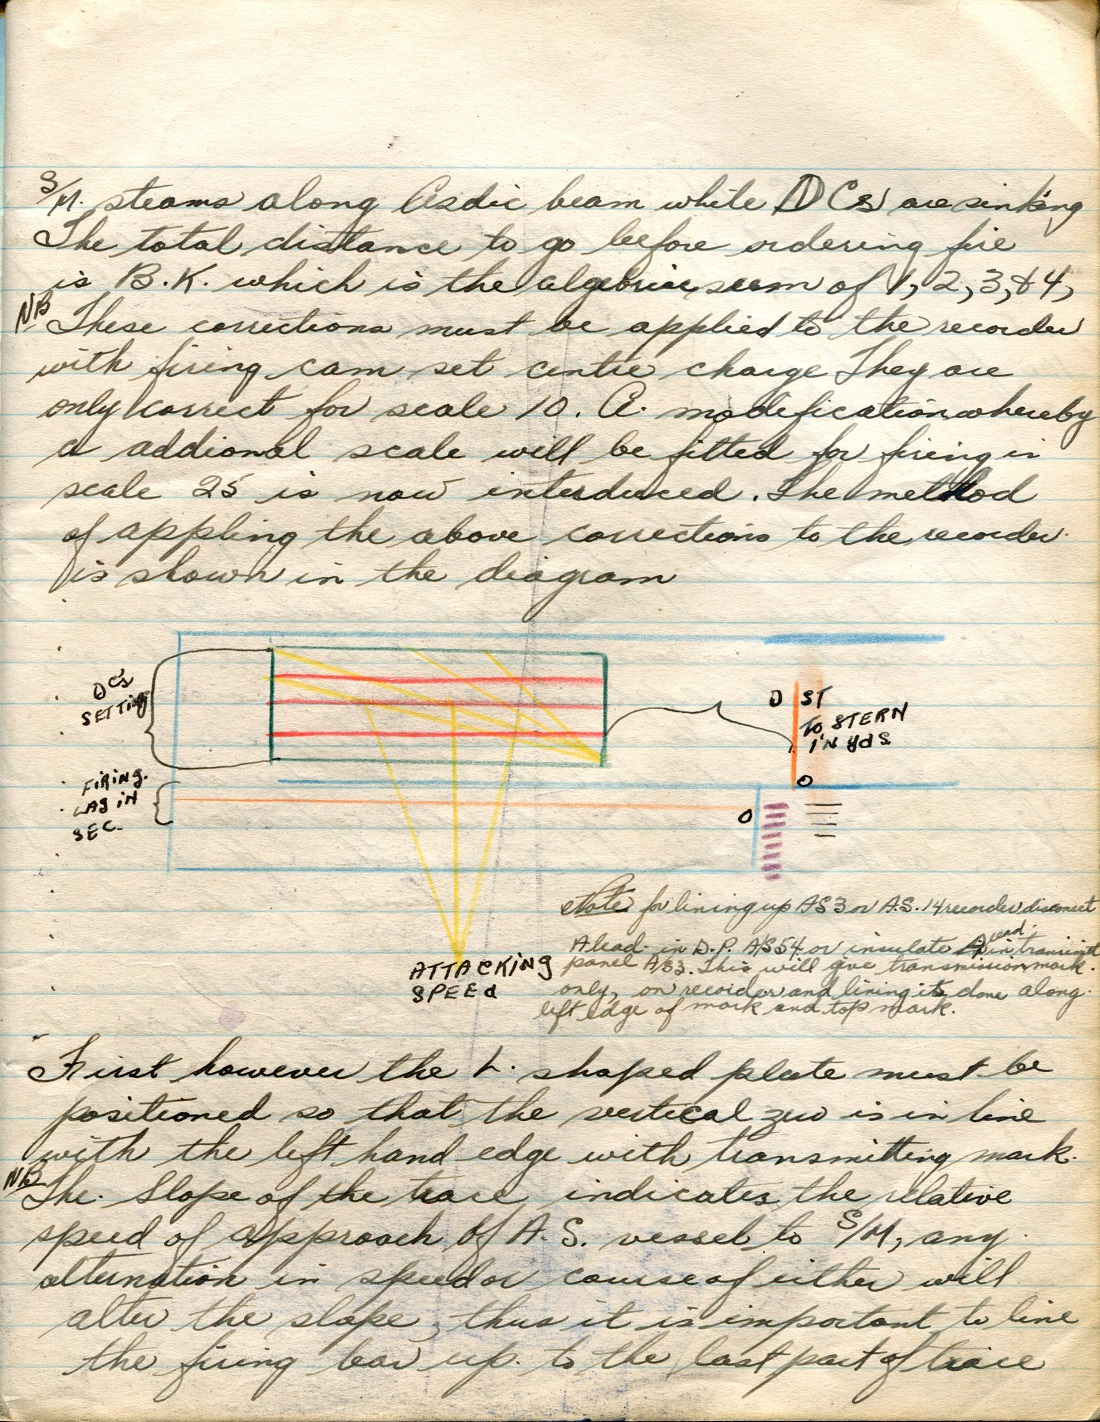 S/M. steams along Asdic beam while DCs are sinking
The total distance to go before ordering fire
is B.K. which is the algebraic sum of 1, 2, 3, & 4,
NB These corrections must be applied to the recorder
with firing cam set centre charge They are
only correct for scale 10. A. modification whereby
a addional scale will be fitted for firing in
scale 25 is now interduced. The method
of appling the above corrections to the recorder
is shown in the diagram
DC's
SETTING
D ST
TO STERN
IN YdS
O
FIRING.
LAG IN
SEC.
O
ATTACKING
SPEEd
Note for lining up AS3 or A.S. 14 recorder disconect
A lead in D.P. A/S 54 or insulate A lead in transmit
panel A/S3. This will give transmission mark.
only, on recorder and lining is done along
left edge of mark and top mark.
First however the L. shaped plate must be
positioned so that the vertical zero is in line
with the left hand edge with transmitting mark.
NB The. Slope of the trace indicates the relative
speed of approach of A.S. vessel to S/M, any
alternation in speed or course of either will
alter the slope, thus it is important to line
the firing bar up. to the last part of trace